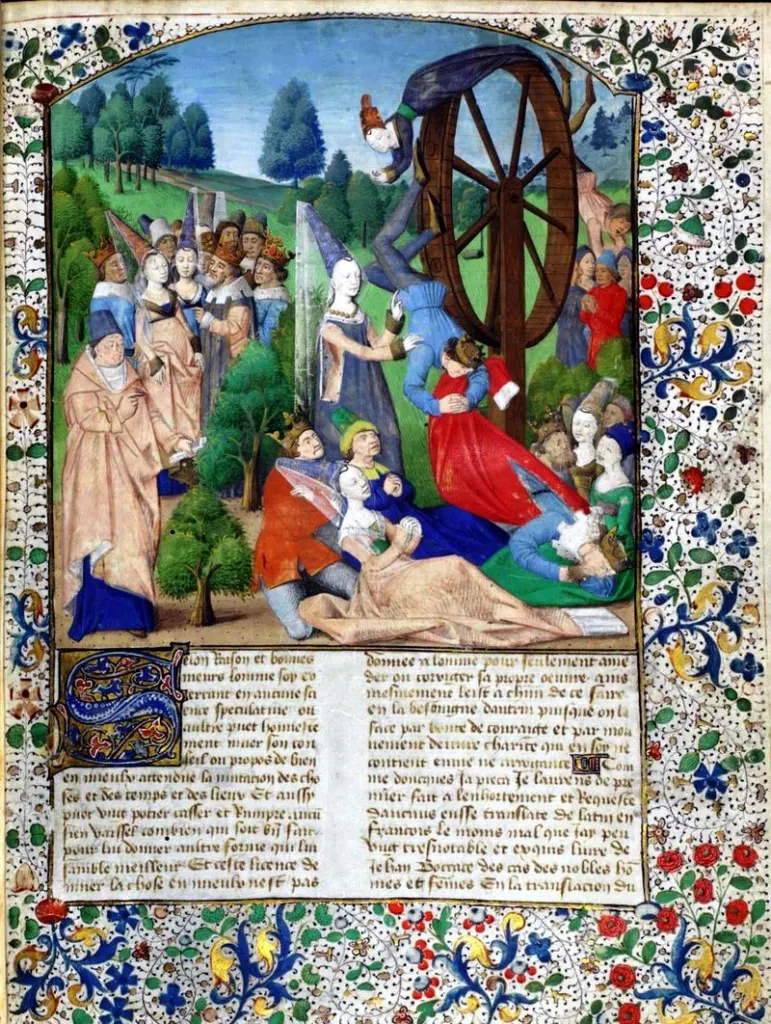 Selon Raison et bonnes
meurs lomme soy ex
ercant en aucune sci
ence speculatiue ou
aultre puet honneste
ment muer son con
seil ou propos de bien
en mieulx attendue la mutacion des cho
ses et des temps et des lieux Et aussy
puet vng potier casser et Rompre aucun
sien vaissel combien qui soit bien fait
pour lui donner aultre forme qui lui
samble meilleur Et ceste licence de
muer la chose en mieulx nest pas
donnee a lomme pour seulement ame
der ou corriger sa propre oeuure ains
mesmement leist a chun de ce faire
en la besoingne dautrui puisque on la
face par bonte de couraige et par mou
uement de vraie charite qui en soy ne
contient enuie ne arrogance Com
me doncques Ja pieca Je laurens de pre
mier fait a lenhortement et Requeste
daucuns eusse translate de latin en
francois le moins mal que iay peu
vng tresnotable et exquis liure de
Jehan Boccace des cas des nobles ho
mes et femes En la translacion du